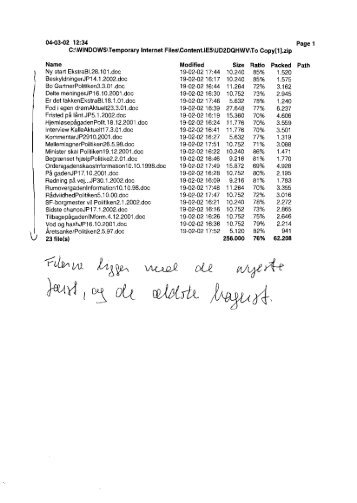 04-03-02 12:34 Page 1
C:\WINDOWS\Temporary Internet Files\Content.IE5\UD2DQHWV\To Copy[1].zip
Name Modified Size Ratio Packed Path
Ny start EkstraBl.28.101.doc 19-02-02 17:44 10.240 85% 1.520
BeskyldningerJP14.1.2002.doc 19-02-02 16:17 10.752 85% 1.575
Bo GartnerPolitiken3.3.01.doc 19-02-02 16:44 11.264 72% 3.162
Dette meningesJP16.10.2001.doc 19-02-02 16:30 10.752 73% 2.945
Er det takkenEkstraBl.18.1.01.doc 19-02-02 17:46 5.632 78% 1.240
Fod i egen drømAktuelt3.01.doc 19-02-02 16:39 27.648 77% 6.237
Fristed på låntJP5.1.2002.doc 19-02-02 16:19 15.360 70% 4.606
HjemløsepågadenPolit.18.12.2001.doc 19-02-02 16:24 11.776 70% 3.559
Interview KalleAktuelt17.3.01.doc 19-02-02 16:41 11.776 70% 3.501
KommentarJP2910.2001.doc 19-02-02 16:27 5.632 77% 1.319
MellemlagnerPolitiken26.5.98.doc 19-02-02 17:51 10.752 71% 3.088
Minister skal Politiken19.12.2001.doc 19-02-02 16:22 10.240 86% 1.471
Begrænset hjælpPolitik2.2.01.doc 19-02-02 16:46 9.216 81% 1.770
OrdensgadenskaosInformation10.10.1998.doc 19-02-02 17:49 15.872 69% 4.928
På gadenJP17.10.2001.doc 19-02-02 16:28 10.752 80% 2.195
Redning på vej,,JP30.1.2002.doc 19-02-02 16:09 9.216 81% 1.783
RumovergadenInformation10.10.98.doc 19-02-02 17:48 11.264 70% 3.355
RådvildhedPolitiken5.10.00.doc 19-02-02 17:47 10.752 72% 3.016
SF-borgmester vil Politiken2.1.2002.doc 19-02-02 16:21 10.240 78% 2.272
Sidste chanceJP17.1.2002.doc 19-02-02 16:16 10.752 73% 2.865
TilbagepågadenINform.4.12.2001.doc 19-02-02 16:26 10.752 75% 2.646
Vod og haxhJP16.10.2001.doc 19-02-02 16:38 10.752 79% 2.214
ÅretsankerPolitiken2.5.97.doc 19-02-02 17:52 5.120 82% 941
23 file(s) 256.000 76% 62.208
Filerne ligger med de nyeste
først, og de ældste bagerst.